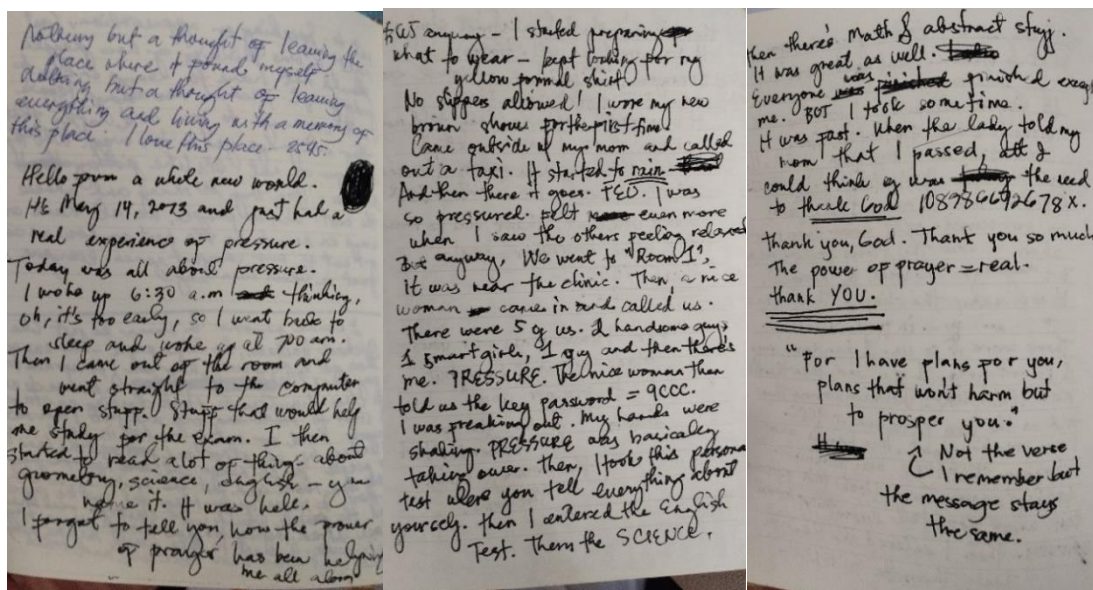 Nothing but a thought of leaving the
place where I found myself
Nothing but a thought of leaving
everything and living with a memory of
this place. I love this place. 2545.
Hello from a whole new world.
It's May 14, 2013 and just had a
real experience of pressure.
Today was all about pressure.
I woke up 6:30 a.m thinking,
oh, it's too early, so I went back to
sleep and woke up at 7:00 am.
Then I came out of the room and
went straight to the computer
to open stuff. Stuff that would help
me study for the exam. I then
started to read alot of things about
geometry, science, english - you
name it. It was hell.
I forgot to tell you, how the power
of prayer has been helping
me all along
anyway - I started preparing
what to wear - kept looking for my
yellow formal shirt.
No slippers allowed! I wore my new
brown shoes for the first time
Came outside w/ my mom and called
out a taxi. It started to rain
And then there it goes. FEU. I was
so pressured. felt even more
when I saw the others feeling relaxed
anyway, We went to "Room 1",
it was near the clinic. Then, a nice
woman came in and called us.
There were 5 of us. 2 handsome guys
1 smart girls, 1 guy and then there's
me. PRESSURE. The nice woman then
told us the key password = 9CCC.
I was freaking out. My hands were
shaking. PRESSURE was basically
taking over. Then, I took this personal
test where you tell everything about
yourself. then I entered the English
Test. Then the SCIENCE.
then there's Math & abstract stuff.
It was great as well.
Everyone was finished except
me. BUT I took some time.
It was fast. When the lady told my
mom that I passed, all I
could think of was the need
to thank God 108786692678x.
thank you, God. Thank you so much
The power of prayer = real.
thank YOU.
"For I have plans for you,
plans that won't harm but
to prosper you."
Not the verse
I remember but
the message stays
the same.